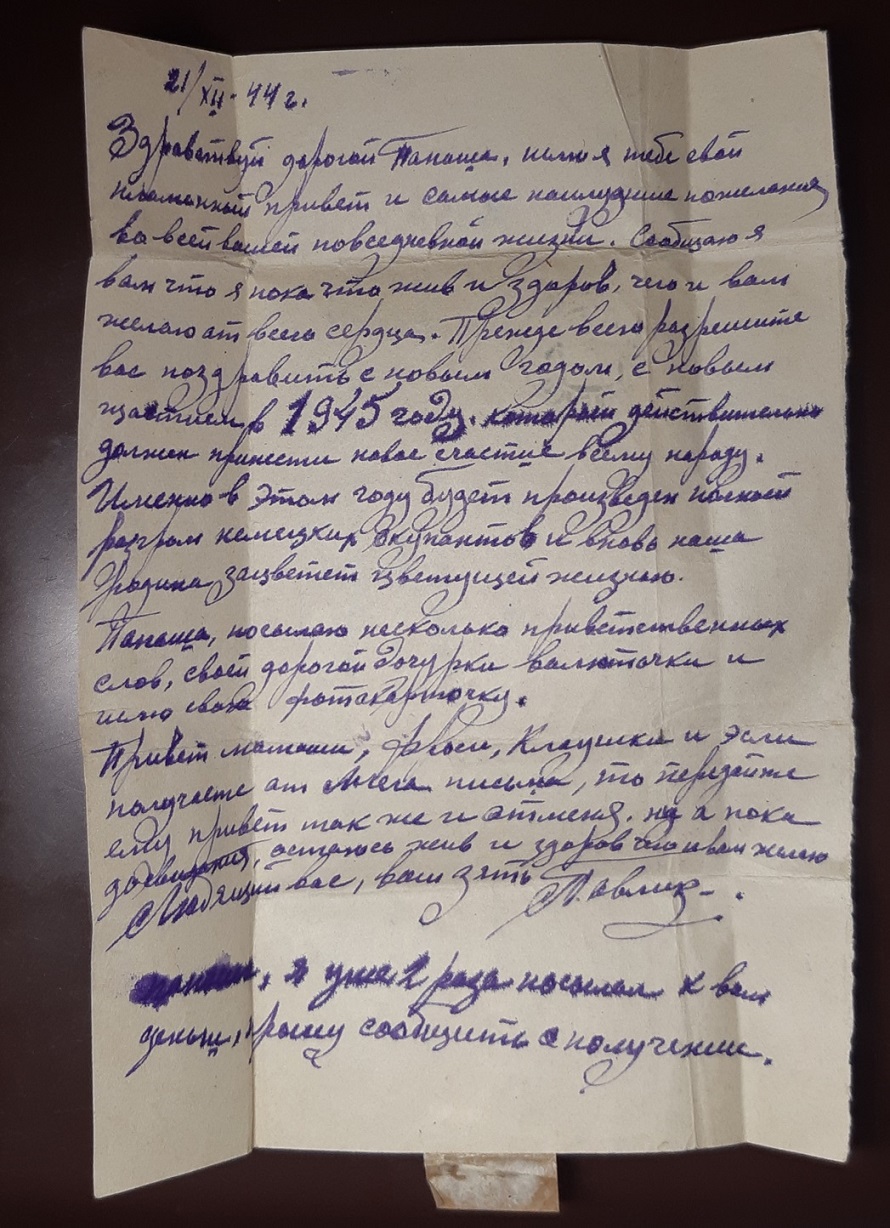 21/XII-44 г.
Здравствуй дорогой Папаша, шлю я тебе свой
пламенный привет и самые наилудшие пожелания
во всей вашей повседневной жизни. Сообщаю я
вам что я пока что жив и здоров, чего и вам
желаю от всего сердца. Прежде всего разрешите
вас поздравить с новым годом, с новым
щастием в 1945 году. который действительно
должен принести новое счастие всему народу.
Именно в этом году будет произведен полный
разгром немецких окупантов и вновь наша
Родина зацветет цветущей жизнью.
Папаша, посылаю несколько приветственных
слов, своей дорогой дочурки валюточки и
шлю свою фотокарточку.
Привет мамаши, Фроси, Клаушки и если
получаете от Олега письма, то передайте
ему привет так же и от меня. ну а пока
досвидания, остаюсь жив и здоров чего и вам желаю
Любящий вас, ваш зять Павлик.
я уже 2 раза посылал к вам
деньги, прошу сообщить о получении.